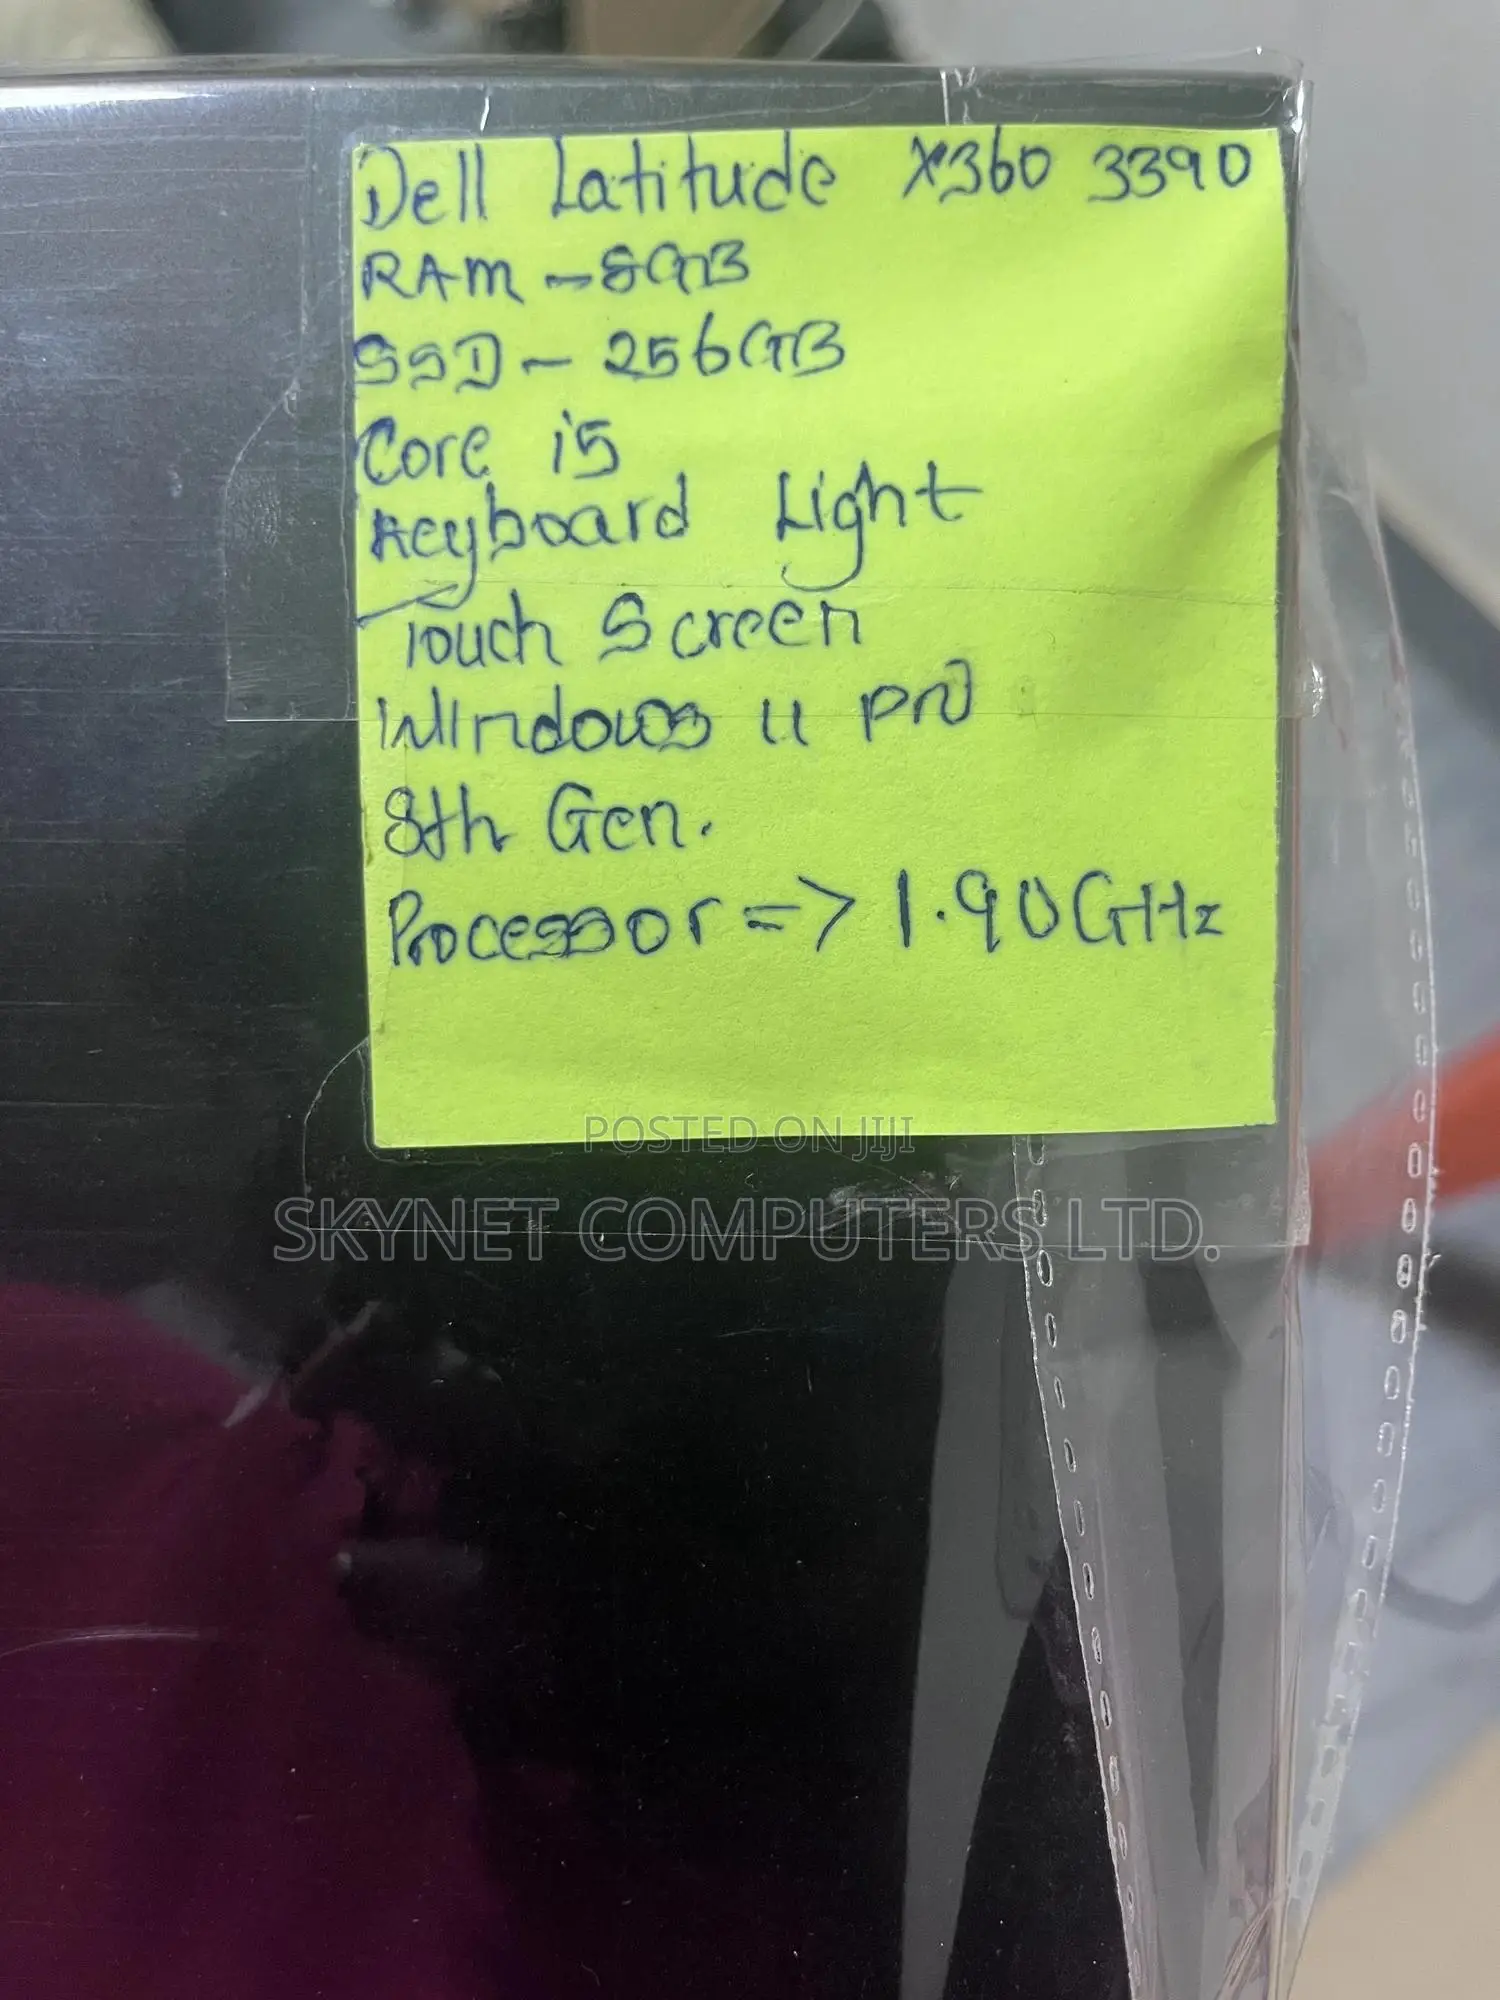 Dell Latitude X360 3390
RAM - 8GB
SSD - 256GB
Core i5
Keyboard Light
Touch Screen
Windows 11 Pro
8th Gen.
Processor => 1.90GHz
POSTED ON JIJI
SKYNET COMPUTERS LTD.